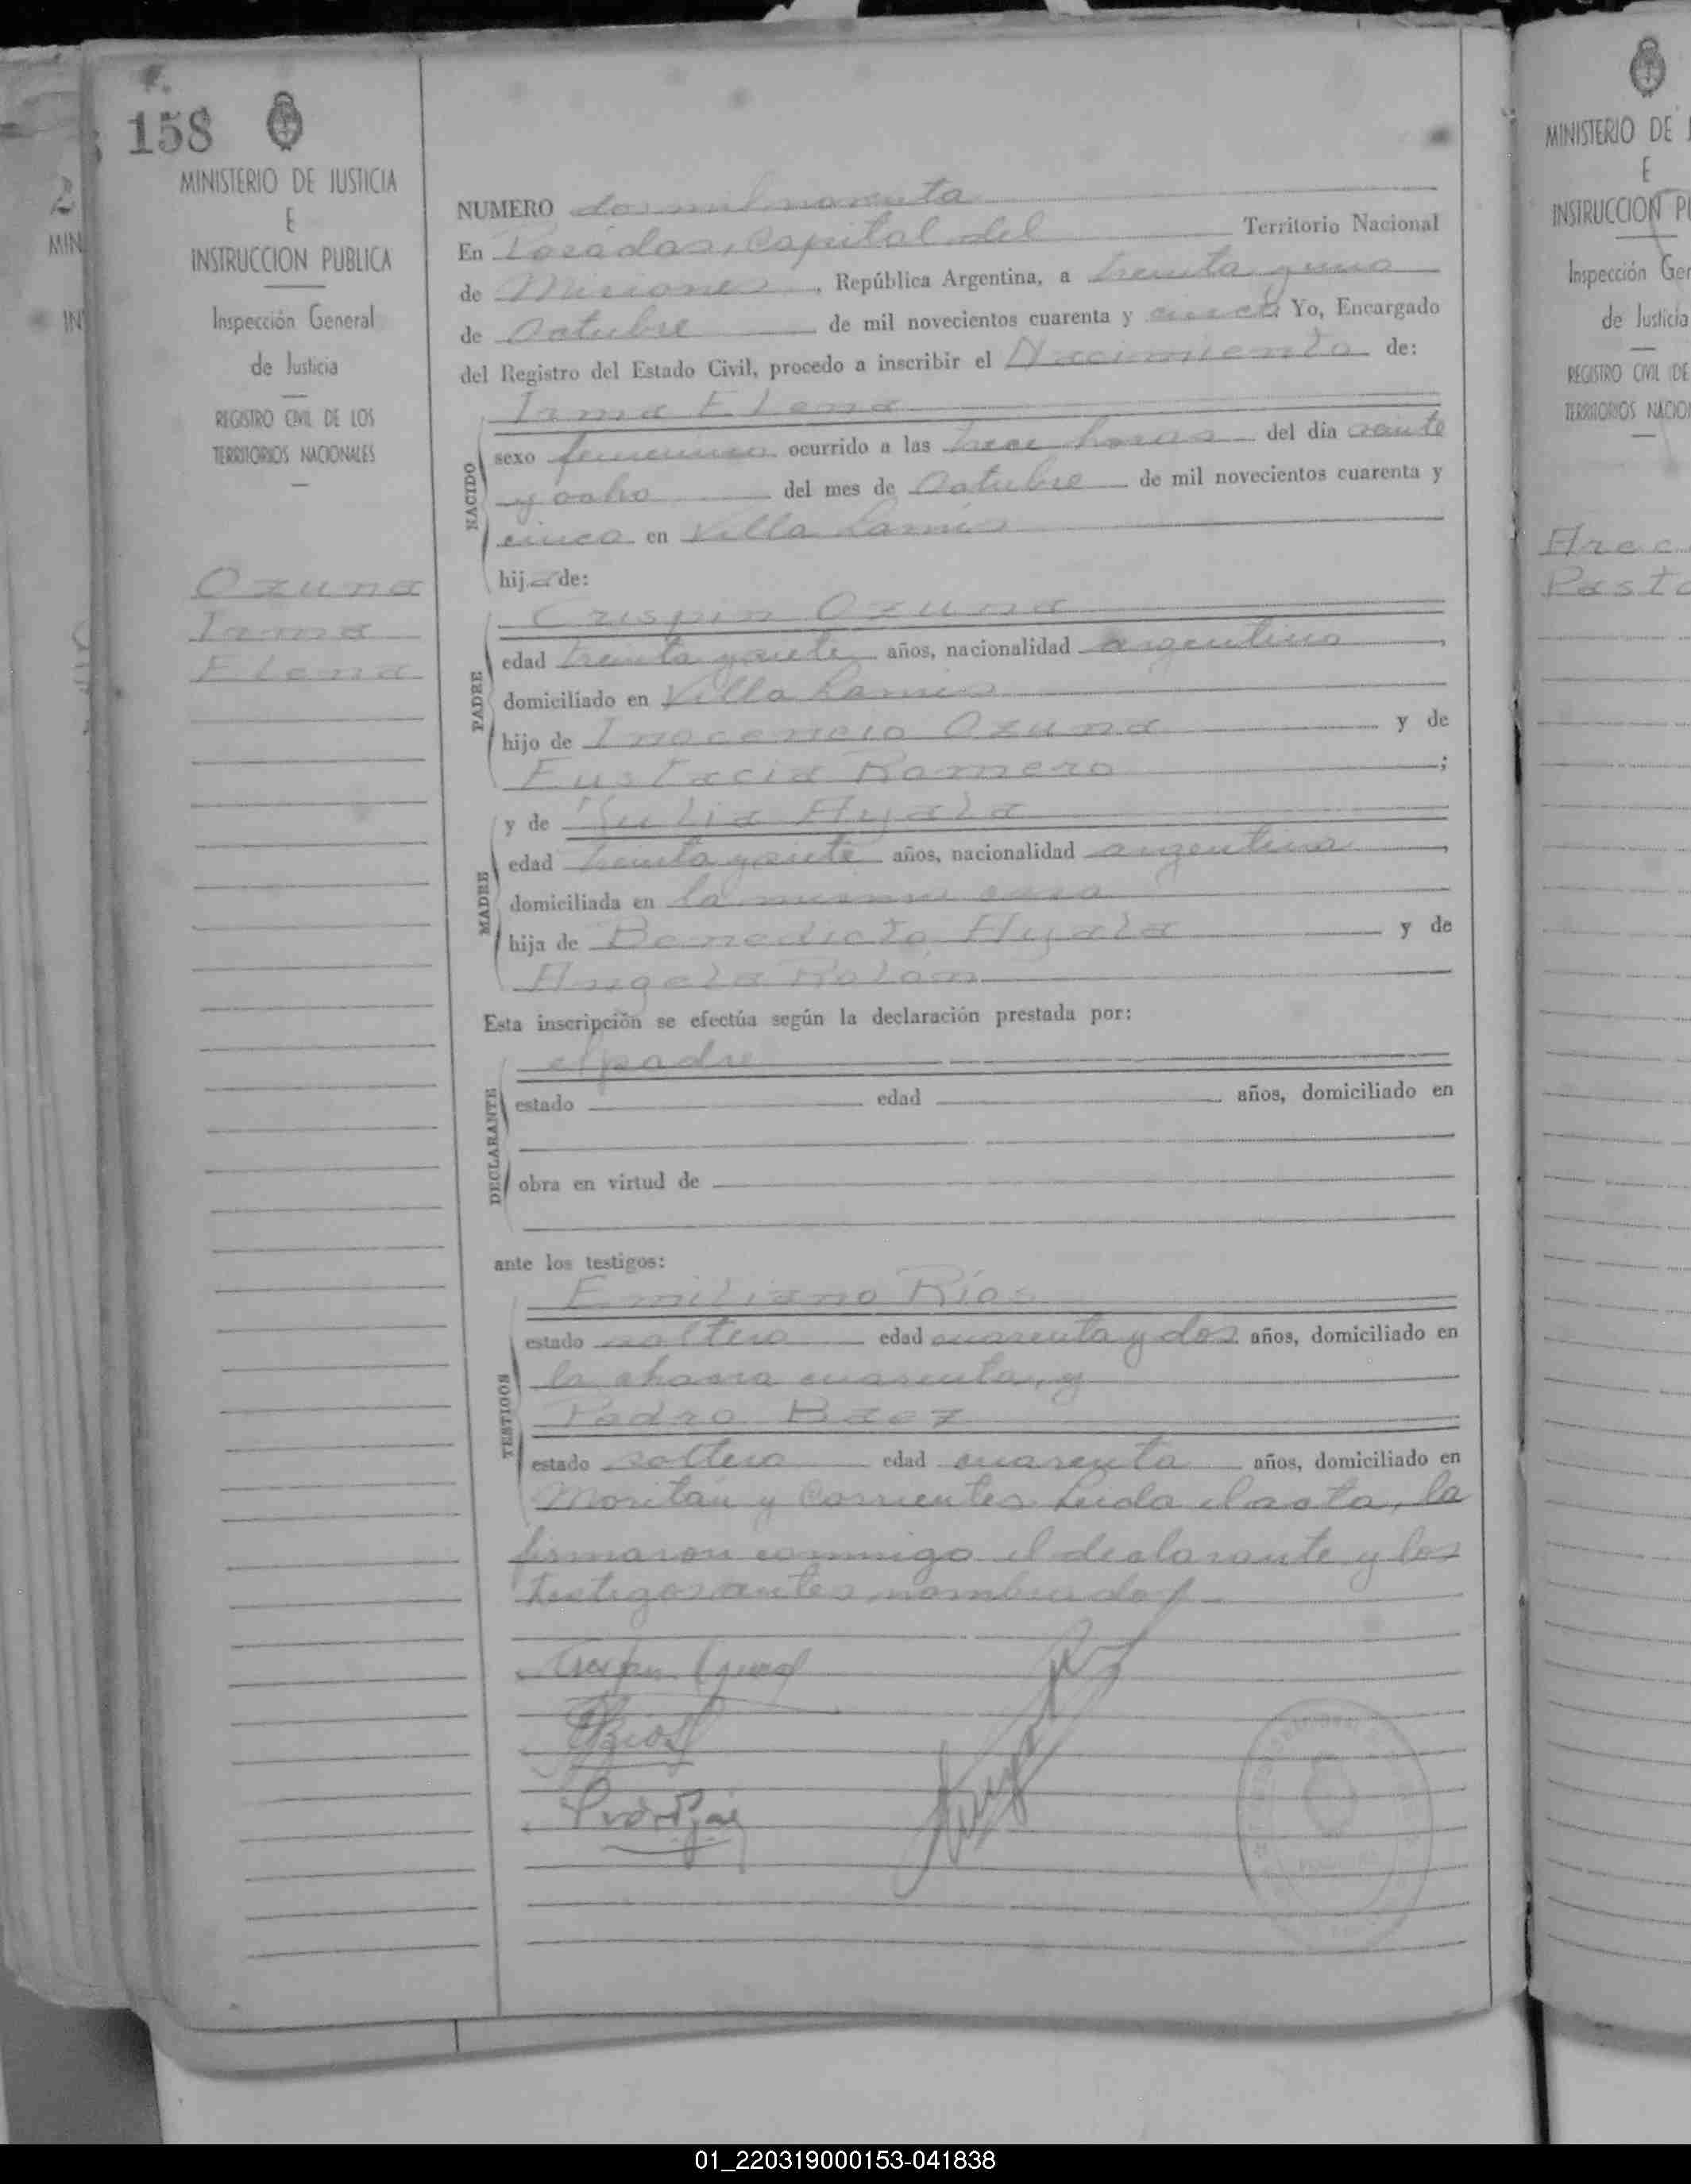 158
MINISTERIO DE JUSTICIA
E
INSTRUCCION PUBLICA
Inspección General
de Justicia
REGISTRO CIVIL DE LOS
TERRITORIOS NACIONALES
Ozuna
Irma
Elena
NUMERO dos mil noventa
En Posadas, Capital del Territorio Nacional
de Misiones, República Argentina, a treinta y uno
de Octubre de mil novecientos cuarenta y cinco Yo, Encargado
del Registro del Estado Civil, procedo a inscribir el Nacimiento de:
Irma Elena
NACIDO
sexo femenino ocurrido a las trece horas del día veinte
y ocho del mes de Octubre de mil novecientos cuarenta y
cinco en Villa Lanús
hija de:
Crispin Ozuna
PADRE
edad treinta y siete años, nacionalidad argentino,
domiciliado en Villa Lanus
hijo de Inocencio Ozuna y de
Eustacia Romero;
y de Julia Ayala
MADRE
edad treinta y siete años, nacionalidad argentina,
domiciliada en la misma casa
hija de Benedicto Ayala y de
Angela Rolón
Esta inscripción se efectúa según la declaración prestada por:
el padre
DECLARANTE
estado edad años, domiciliado en
obra en virtud de
ante los testigos:
Emiliano Ríos
TESTIGOS
estado soltero edad cuarenta y dos años, domiciliado en
la chacra cuarenta, y
Pedro Baez
estado soltero edad cuarenta años, domiciliado en
Moritán y Corrientes Leida el acta, la
firmaron conmigo el declarante y los
testigos antes nombrados
MINISTERIO DE
E
INSTRUCCION
Inspección
de Justicia
REGISTRO CIVIL DE
TERRITORIOS
01_220319000153-041838